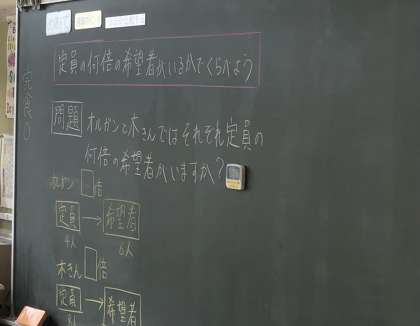 定員の何倍の希望者がいるかでくらべよう
問題 オルガンと木きんではそれぞれ定員の
何倍の希望者がいますか?
オルガン 倍
定員 → 希望者
4人 6人
木きん 倍
定員 → 希望者